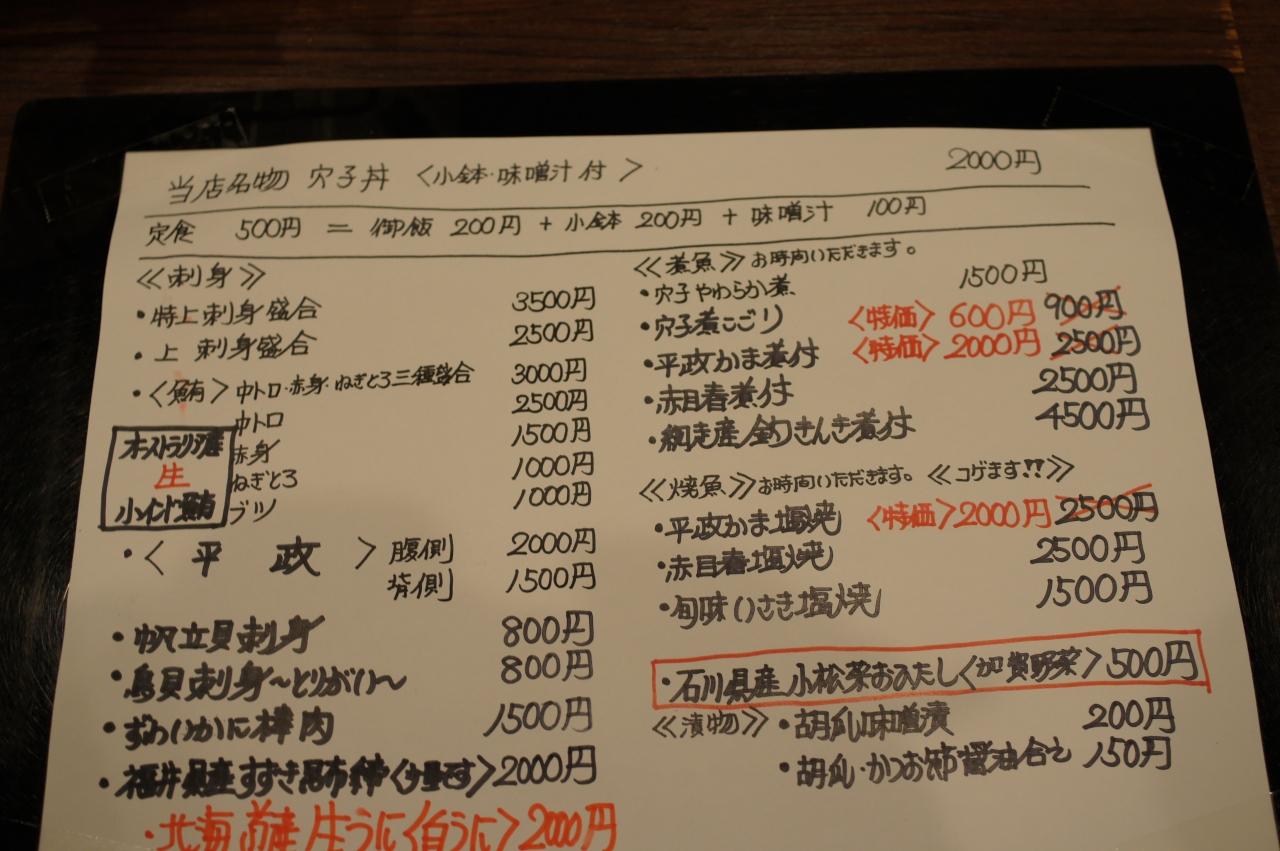 当店名物 穴子丼 〈小鉢・味噌汁付〉 2000円
定食 500円 = 御飯 200円 + 小鉢 200円 + 味噌汁 100円
≪刺身≫
・特上刺身盛合 3500円
・上 刺身盛合 2500円
・〈鮪〉中トロ・赤身・ねぎとろ三種盛合 3000円
中トロ 2500円
赤身 1500円
ねぎとろ 1000円
ブツ 1000円
オーストラリア産
生
インド鮪
・〈平政〉腹側 2000円
背側 1500円
・帆立貝刺身 800円
・鳥貝刺身~とりがい~ 800円
・ずわいかに棒肉 1500円
・福井県産すずき昆布〆〈少量です〉2000円
・北海道産生うに〈白うに〉2000円
≪煮魚≫お時間いただきます。
・穴子やわらか煮 1500円
・穴子煮こごり 〈特価〉600円 900円
・平政かま煮付 〈特価〉2000円 2500円
・赤目春煮付 2500円
・網走産釣きんき煮付 4500円
≪焼魚≫お時間いただきます。≪コゲます!!≫
・平政かま塩焼 〈特価〉2000円 2500円
・赤目春塩焼 2500円
・旬味いさき塩焼 1500円
・石川県産小松菜おひたし〈加賀野菜〉500円
≪漬物≫・胡瓜味噌漬 200円
・胡瓜・かつお節醤油合え 150円